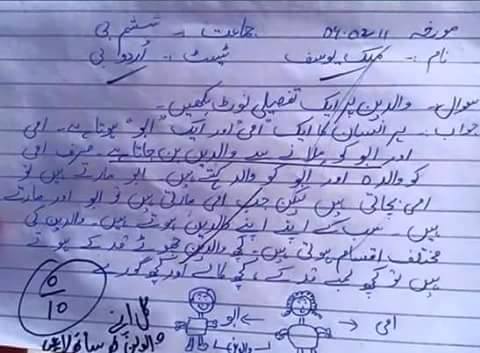 مورخہ 04.02.11 جماعت :- ششم بی
نام :- ملک یوسف ٹیسٹ :- اُردو بی
سوال :- والدین پر ایک تفصیلی نوٹ لکھیں۔
جواب :- ہر انسان کا ایک "امی" اور ایک "ابو" ہوتا ہے۔ امی
اور ابو کو ملانے سے والدین بن جاتا ہے۔ صرف امی
کو والدہ اور ابو کو والد کہتے ہیں۔ ابو مارتے ہیں تو
امی بچاتی ہیں لیکن جب امی مارتی ہیں تو ابو اور مارتے
ہیں۔ سب کے اپنے اپنے والدین ہوتے ہیں۔ والدین کی
مختلف اقسام ہوتی ہیں۔ کچھ والدین چھوٹے قد کے ہوتے
ہیں تو کچھ لمبے قد کے، کچھ کالے اور کچھ گورے
0
10
کل اپنے
والدین کو ساتھ لائیں
ابو
امی
والدین